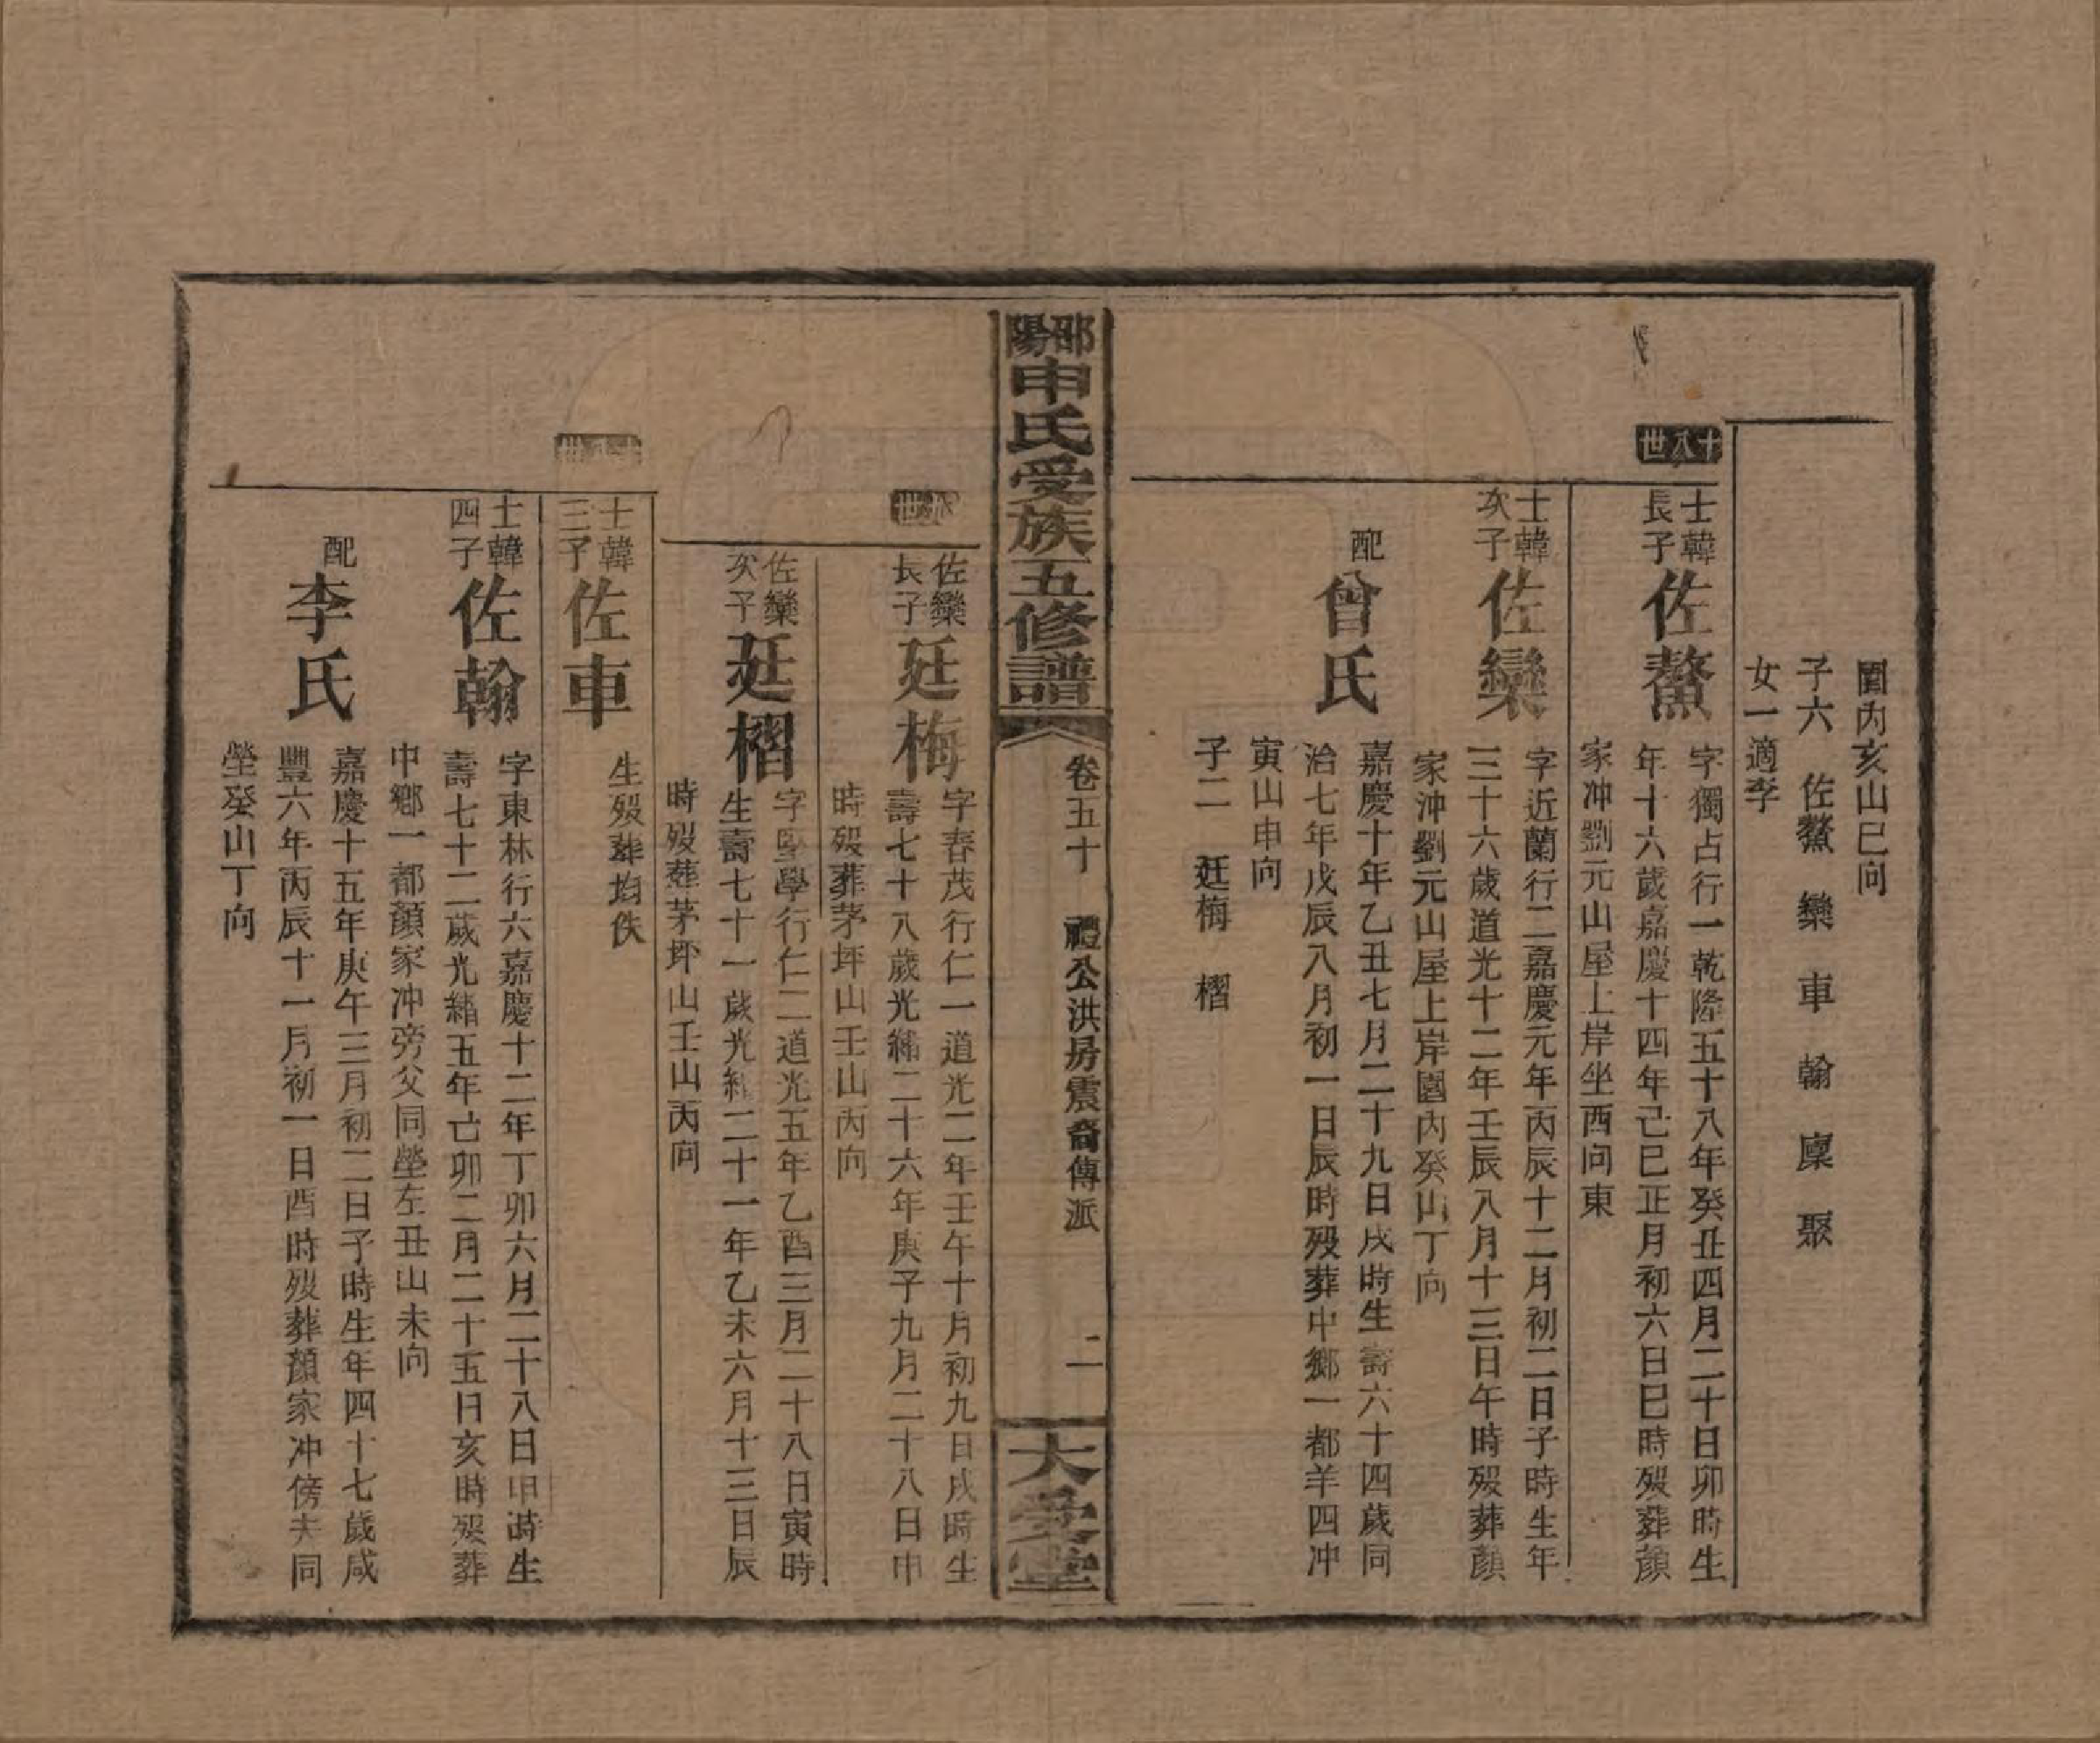 園內亥山巳向
子六 佐鰲 欒 車 翰 廩 聚
女一適李
十八世
士韓長子
佐鰲
字獨占行一乾隆五十八年癸丑四月二十日卯時生
年十六歲嘉慶十四年己巳正月初六日巳時歿葬顏
家冲劉元山屋上岸坐酉向東
士韓次子
佐欒
字近蘭行二嘉慶元年丙辰十二月初二日子時生年
三十六歲道光十二年壬辰八月十三日午時歿葬顏
家沖劉元山屋上岸園內癸山丁向
配
曾氏
嘉慶十年乙丑七月二十九日戌時生壽六十四歲同
治七年戊辰八月初一日辰時歿葬中鄉一都羊四冲
寅山申向
子二 廷梅 槢
邵陽申氏受族五修譜
卷五十 禮公洪房震裔傳派 二
大受堂
世
佐欒長子
廷梅
字春茂行仁一道光二年壬午十月初九日戌時生
壽七十八歲光緒二十六年庚子九月二十八日申
時歿葬茅坪山壬山丙向
佐欒次子
廷槢
字堅學行仁二道光五年乙酉三月二十八日寅時
生壽七十一歲光緒二十一年乙未六月十三日辰
時歿葬茅坪山壬山丙向
十八世
士韓三子
佐車
生歿葬均佚
士韓四子
佐翰
字東林行六嘉慶十二年丁卯六月二十八日申時生
壽七十二歲光緒五年亡卯二月二十五日亥時歿葬
中鄉一都顏家冲旁父同塋左丑山未向
配
李氏
嘉慶十五年庚午三月初二日子時生年四十七歲咸
豐六年丙辰十一月初一日酉時歿葬顏家冲傍夫同
塋癸山丁向